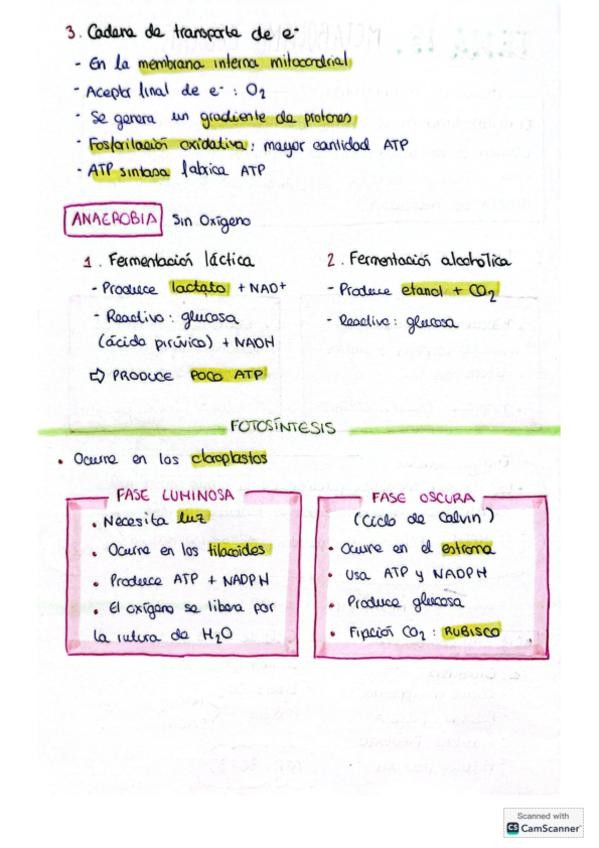 3. Cadena de transporte de e⁻
- En la membrana interna mitocondrial
- Aceptor final de e⁻ : O₂
- Se genera un gradiente de protones
- Fosforilación oxidativa : mayor cantidad ATP
- ATP sintasa fabrica ATP
ANAEROBIA Sin Oxígeno
1. Fermentación láctica
- Produce lactato + NAD+
- Reactivo : glucosa
(ácido pirúvico) + NADH
⇨ PRODUCE POCO ATP
2. Fermentación alcohólica
- Produce etanol + CO₂
- Reactivo : glucosa
FOTOSÍNTESIS
• Ocurre en los cloroplastos
FASE LUMINOSA
• Necesita luz
• Ocurre en los tilacoides
• Produce ATP + NADPH
• El oxígeno se libera por
la rutura de H₂O
FASE OSCURA
(Ciclo de Calvin)
• Ocurre en el estroma
• Usa ATP y NADPH
• Produce glucosa
• Fijación CO₂ : RUBISCO
Scanned with
CS CamScanner